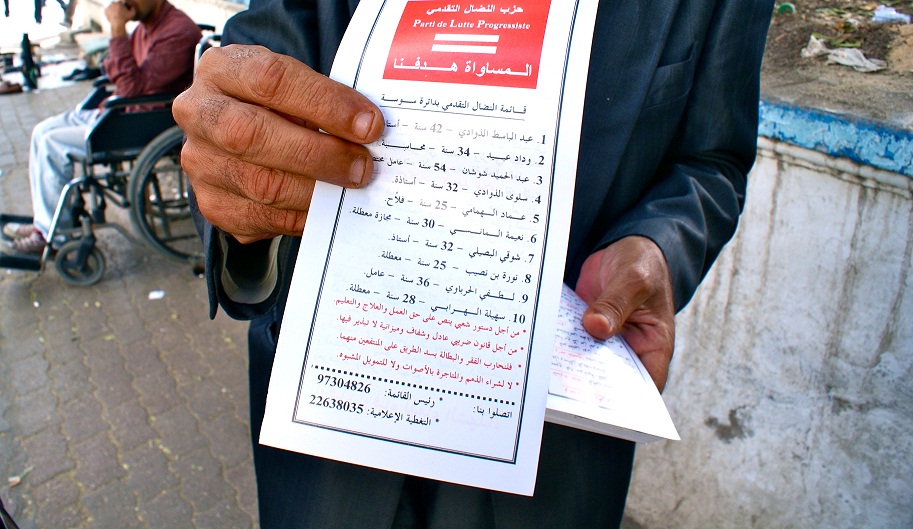 حزب النضال التقدمي
Parti de Lutte Progressiste
المساواة هدفنا
قائمة النضال التقدمي بدائرة سوسة
1. عبد الباسط الذوادي – 42 سنة –
2. وداد عبيد – 34 سنة –
3. عبد الحميد شوشان – 54 سنة – عامل
4. سلوى الذوادي – 32 سنة – أستاذة.
5. عماد الهمامي – 25 سنة – فلاح.
6. نعيمة – 30 سنة – مجازة معطلة.
7. شوقي البصيلي – 32 سنة – أستاذ.
8. نورة بن نصيب – 25 سنة – معطلة.
9. لطفي الحرباوي – 36 سنة – عامل.
10. سهيلة الهرابي – 28 سنة – معطلة.
* من أجل دستور شعبي ينص على حق العمل والعلاج والتعليم.
* من أجل قانون ضريبي عادل وشفاف وميزانية لا تبذير فيها.
* فلنحارب الفقر والبطالة بسد الطريق على المنتفعين منهما.
* لا لشراء الذمم والمتاجرة بالأصوات ولا للتمويل المشبوه.
اتصلوا بنا: * رئيس القائمة: 97304826
* التغطية الإعلامية: 22638035